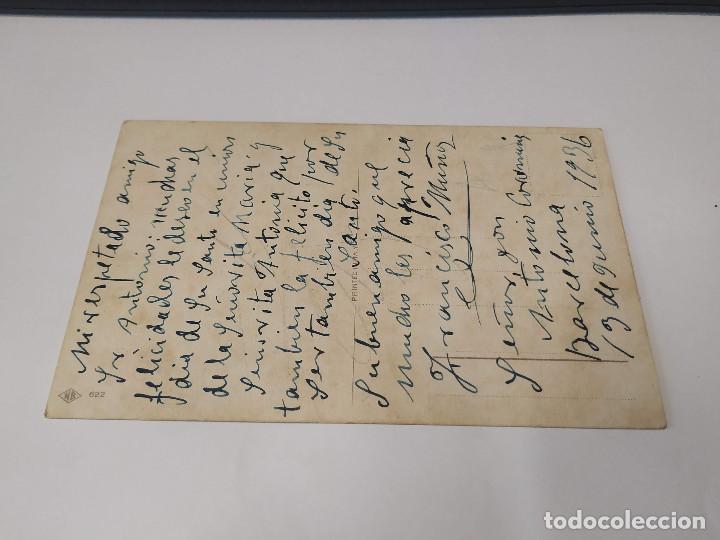 Mi respetado amigo
Sr Antonio: muchas
felicidades le deseo en el
dia de Su Santo en union
de la Señorita Maria y
Señorita Antonia que
tambien la felicito por
Ser tambien dia de Su
Santo.
Su buen amigo que
mucho les aprecia
Francisco Muñoz
Señor, don
Antonio
Barcelona
13 de Junio 1936
NB
622
todocoleccion
todocoleccion.net